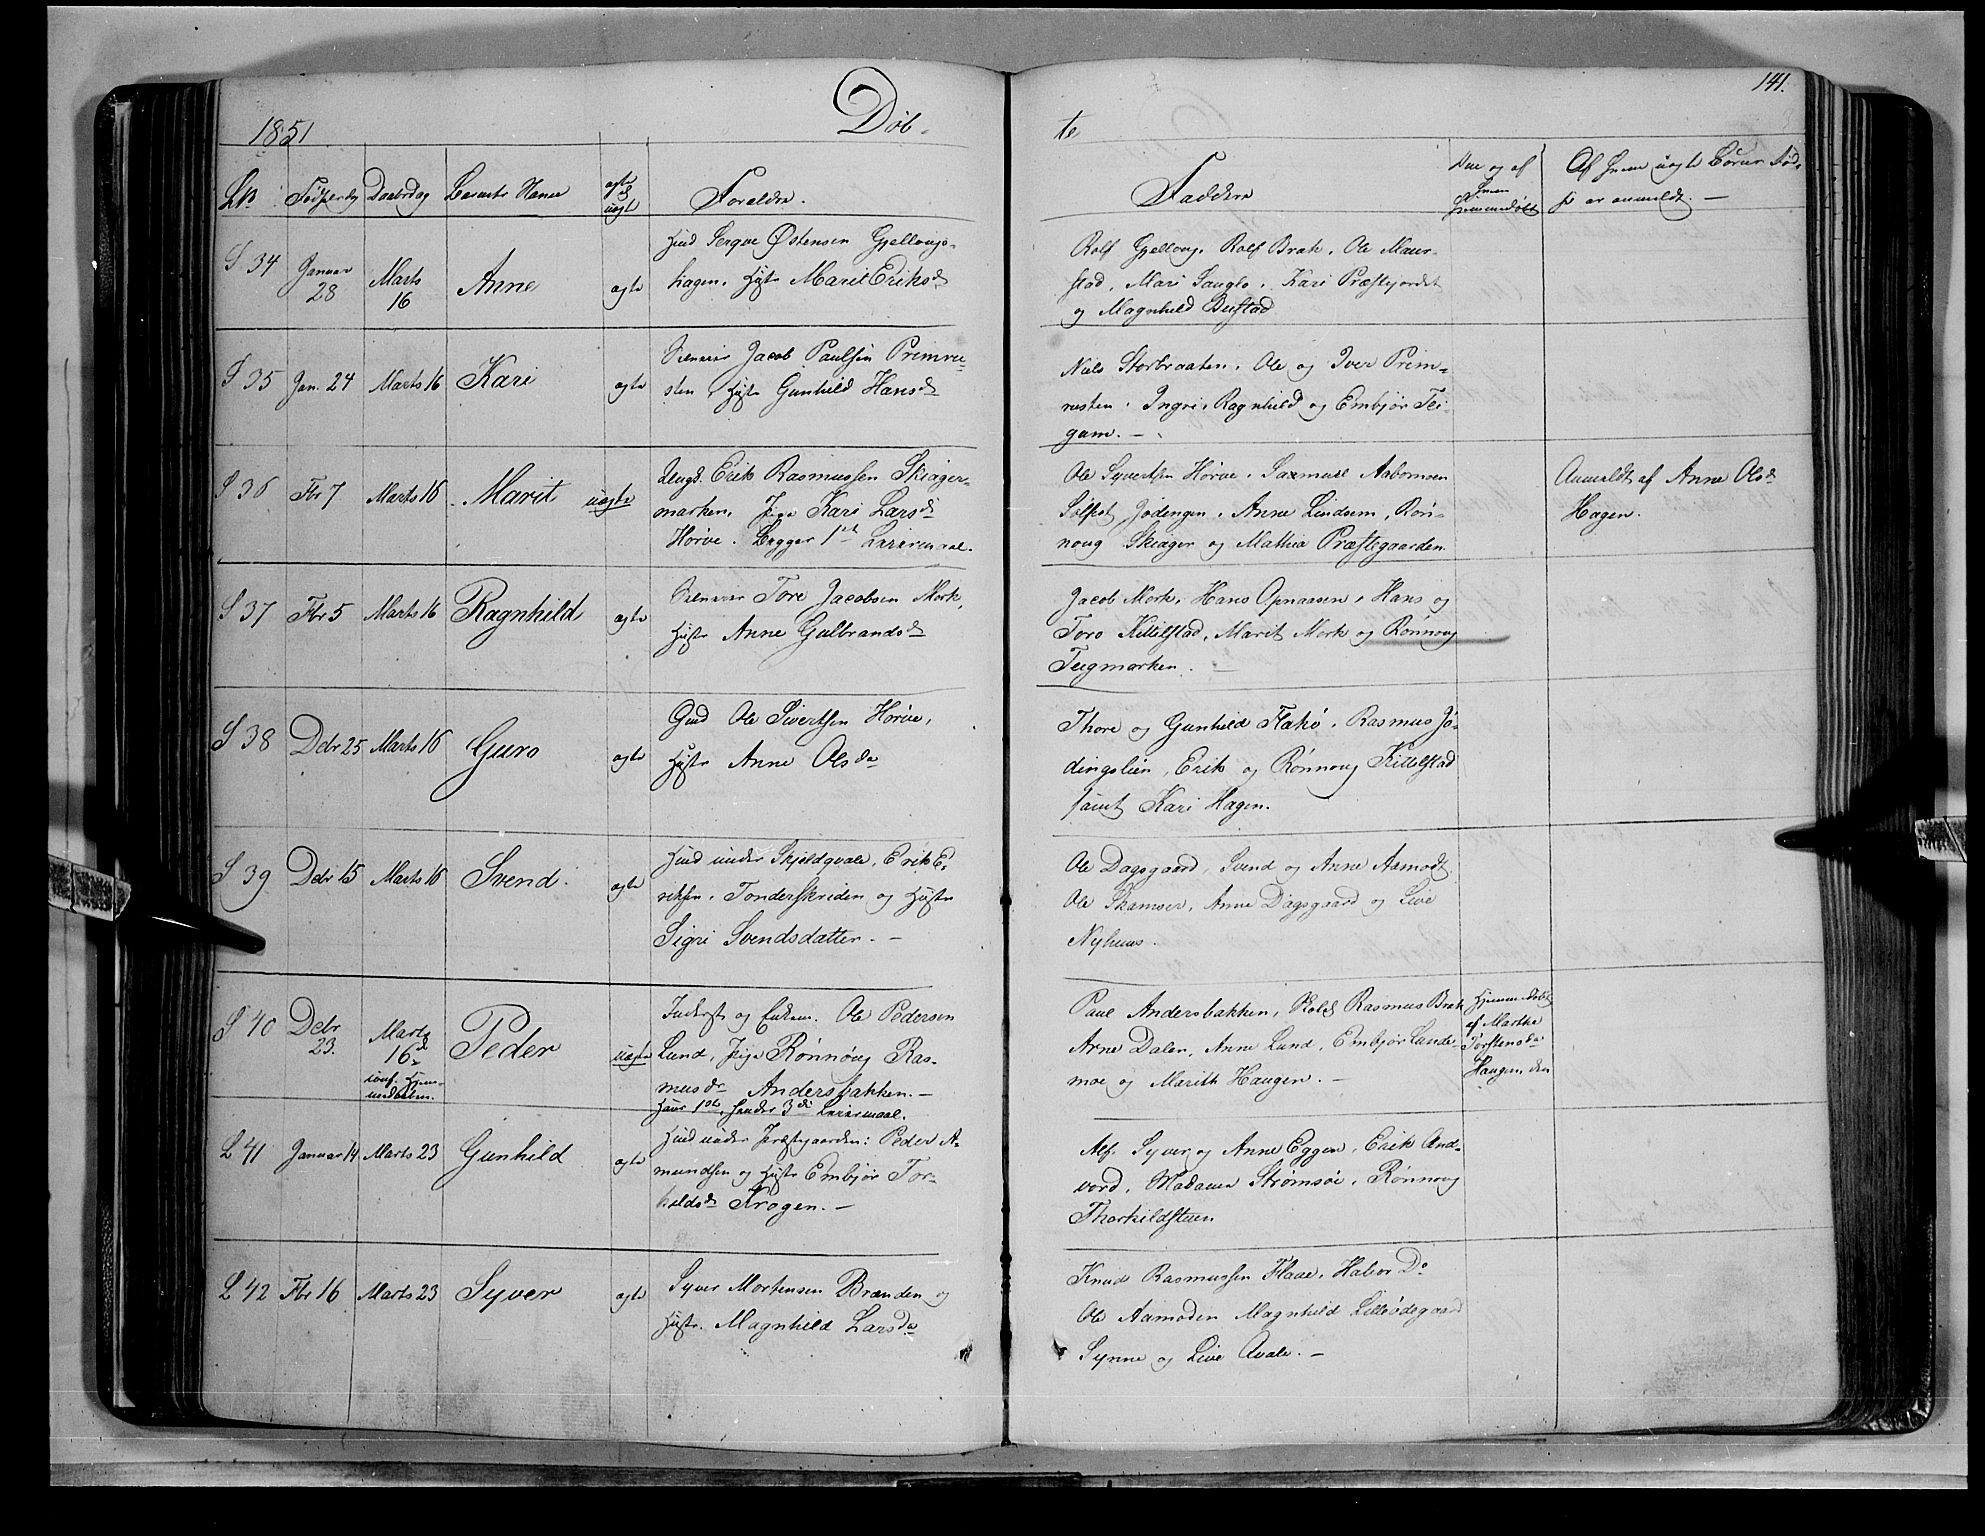 141.
1851 Døb- te
No Fødselsdag Daabsdag Barnets Navn ægte & uægt Forældre. Faddere Naar og af hvem hjemmedøbt Af hvem uægte Børns Fødsel er anmeldt. —
S 34 Januar 28 Marts 16 Anne ægte
Huusmd Østensen Gjellougs-
hagen, Hustr Marit Eriksdr
Rolf Gjelloug, Rolf Brak, Ole Maur-
stad, Mari Sanglo, Kari Præstjordet
og Magnhild Bustad
S 35 Jan. 24 Marts 16 Kari ægte
Jacob Paulsen Primve-
sten, Hustr Gunhild Hansdr
Niels Storbraaten, Ole og Iver Prim-
vesten, Ingri, Ragnhild og Embjør Tei-
gum. —
S 36 Fbr 7 Marts 16 Marit uægte
Ungk. Erik Rasmussen Skiager-
marken, Pige Kari Larsdr
Hørve. Begges 1ste Leiermaal.
Ole Syvertsen Hørve, Rasmus Asbornsen
Solfest Jødengen, Anne Lindsem, Røn-
noug Skiager og Mathea Præstegaarden
Anmeldt af Anne Olsdr
Hagen.
S 37 Fbr 5 Marts 16 Ragnhild ægte
Tore Jacobsen Mork,
Hustr Anne Gulbrandsdr
Jacob Mork, Hans Opnaasen, Hans og
Toro Kittilstad, Marit Mork og Rønnoug
Teigmarken. —
S 38 Debr 25 Marts 16 Guro ægte
Gmd Ole Sivertsen Hørve,
Hustr Anne Olsda
Thore og Gunhild Flakø, Rasmus Jø-
dingslien, Erik og Rønnoug Kittelstad
samt Kari Hagen.
S 39 Debr 15 Marts 16 Svend. ægte
Husmd under Skjeldqvale, Erik E-
riksen, Tonderskriden og Hustr
Sigri Svendsdatter. —
Ole Dagsgaard, Svend og Anne Aamodt
Ole Skamser, Anne Dagsgaard og Live
Nyhuus.
S 40 Debr 23. Marts 16de conf. Hjem-
medaaben. Peder uægte
Inderst og Enkem. Ole Pedersen
Lund, Pige Rønnoug Ras-
musdr Andersbakken. —
Hans 1ste, hendes 3die Leiermaal.
Paul Andersbakken, Rasmus Brak
Arne Dalen, Anne Lund, Embjør Lunde-
moe og Marith Haugen. —
Hjemmedøbt
af Marthe
Torstensda
Haugen, den
L 41 Januar 14 Marts 23 Gunhild ægte
Husmd under Præstegaarden: Peder A-
mundsen og Hustr Embjør Tor-
kildsdr Krogen. —
Alf, Syver og Anne Eggen, Erik And-
vord, Madame Strømsøe, Rønnoug
Thorkildstuen
L 42 Fbr 16 Marts 23 Syver ægte
Syver Mortensen Brænden og
Hustr. Magnhild Larsda
Knud Rasmussen Flaae, Halvor Do
Ole Aamoden Magnhild Lillødegaard
Synne og Live Qvale. —